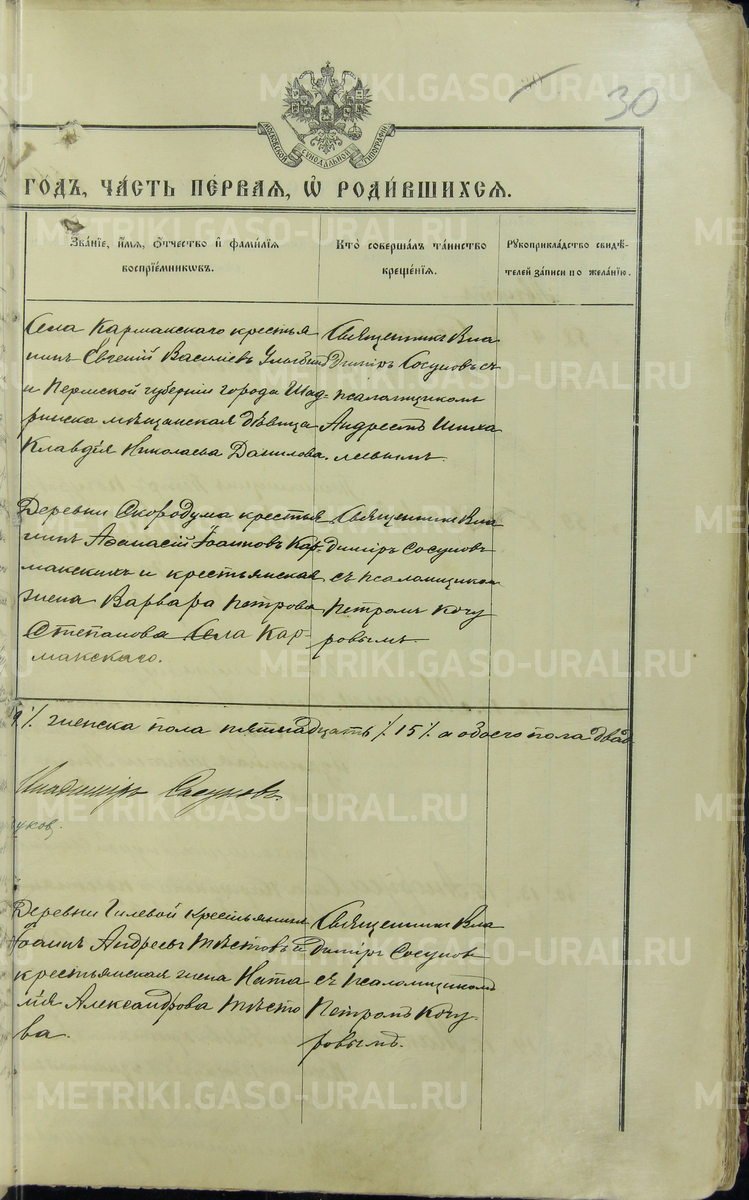 30
МОСКОВСКОЙ СѴНОДАЛЬНОЙ ТИПОГРАФІИ
ГОДЪ, ЧА́СТЬ ПЕ́РВАЯ, Ѡ҆ РОДИ́ВШИХСЯ.
Зва́нїе, и҆́мя, ѻ҆́тчество и҆ фами́лїя
воспрїе́мниковъ.
Кто̀ соверша́лъ та́инство
креще́нїя.
Рꙋкоприкла́дство свидѣ́-
телей за́писи по жела́нїю.
Села Кармакскаго крестья
нинъ Евгеній Васильевъ
и Пермской губерніи города Шад-
ринска мѣщанская дѣвица
Клавдія Николаева Данилова.
Священникъ Вла
димиръ Сосуновъ съ
псаломщикомъ
Андреемъ Шиха
левымъ.
Деревни Скородума крестья
нинъ Аѳанасій Іоанновъ Кар-
макскихъ и крестьянская
жена Варвара Петрова
Степанова Села Кар-
макскаго.
Священникъ Вла
димиръ Сосуновъ
съ псаломщикомъ
Петромъ Кочу
ровымъ.
женска пола пятнадцать /15/ а обоего пола двад-
Владимиръ Сосуновъ.
уковъ.
Деревни Гилевой крестьянинъ
Іоаннъ Андреевъ Тѣстовъ и
крестьянская жена Ната
лія Александрова Тѣсто
ва.
Священникъ Вла
димиръ Сосуновъ
съ псаломщикомъ
Петромъ Кочу-
ровымъ.
METRIKI.GASO-URAL.RU